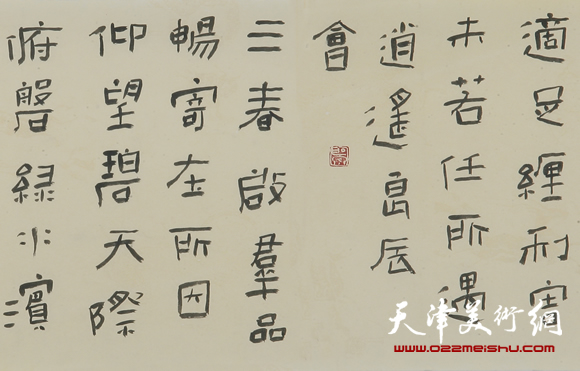 適足纏利害
未若任所遇
逍遙良辰
會
三春啟羣品
暢寄在所因
仰望碧天際
俯磐綠水濱
天津美術網
www.022meishu.com